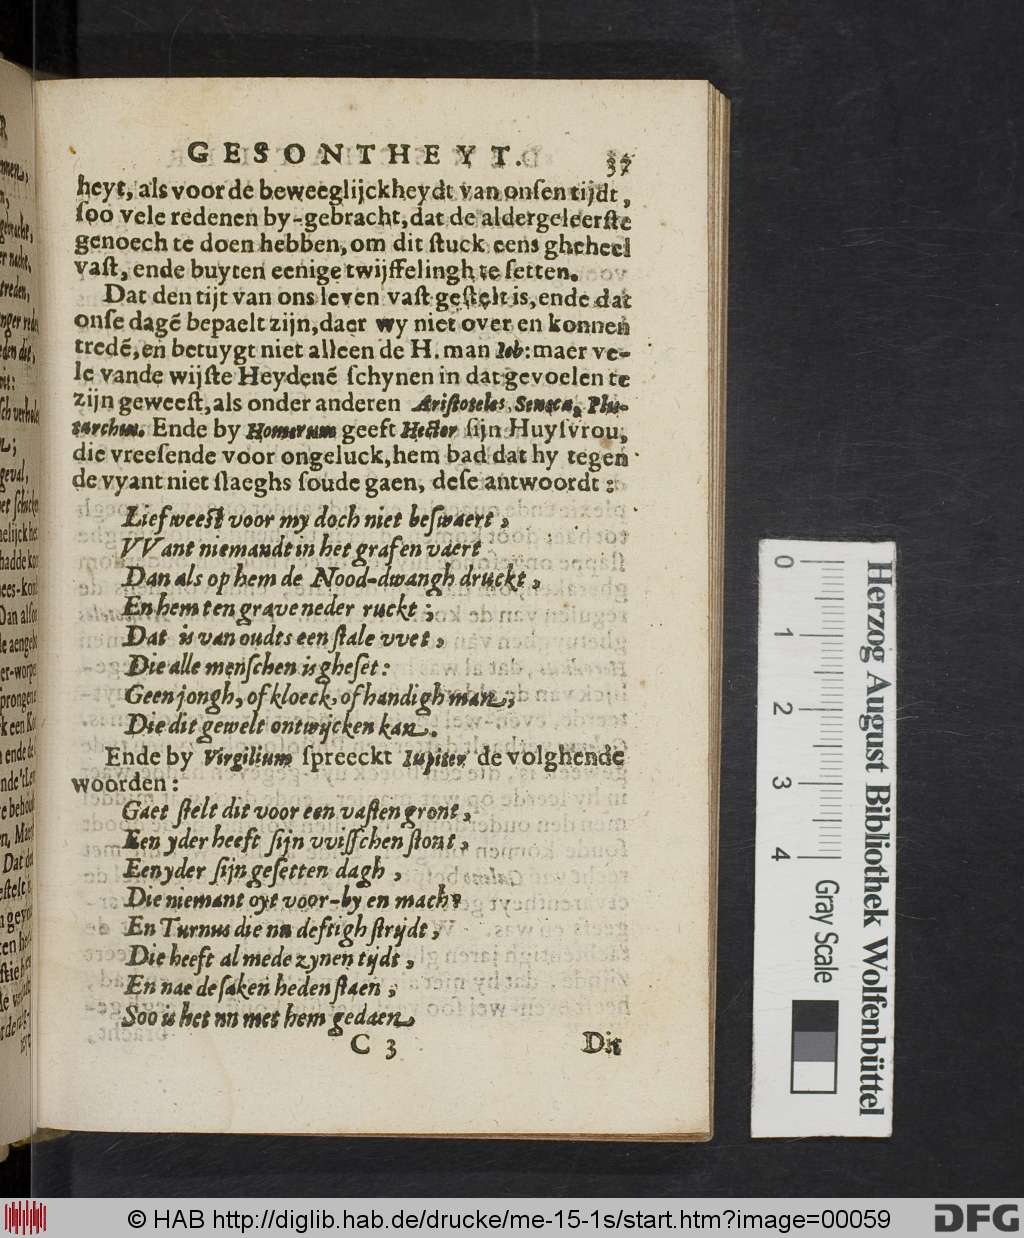 GESONTHEYT. 37
heyt, als voor de beweeglijckheydt van onſen tijdt,
ſoo vele redenen by-gebracht, dat de aldergeleerſte
genoech te doen hebben, om dit ſtuck eens gheheel
vaſt, ende buyten eenige twijffelingh te ſetten.
Dat den tijt van ons leven vaſt geſtelt is, ende dat
onſe dagē bepaelt zijn, daer wy niet over en konnen
tredē, en betuygt niet alleen de H. man Iob: maer ve-
le vande wijſte Heydenē ſchynen in dat gevoelen te
zijn geweeſt, als onder anderen Ariſtoteles, Seneca, Plu-
tarchus. Ende by Homerum geeft Hector ſijn Huyſvrou,
die vreeſende voor ongeluck, hem bad dat hy tegen
de vyant niet ſlaeghs ſoude gaen, deſe antwoordt:
Lief weeſt voor my doch niet beſwaert,
VVant niemandt in het graf en vaert
Dan als op hem de Nood-dwangh druckt,
En hem ten grave neder ruckt;
Dat is van oudts een ſtale vvet,
Die alle menſchen is gheſet:
Geen jongh, of kloeck, of handigh man,
Die dit gewelt ontwijcken kan.
Ende by Virgilium ſpreeckt Iupiter de volghende
woorden:
Gaet ſtelt dit voor een vaſten gront,
Een yder heeft ſijn vviſſchen ſtont,
Een yder ſijn geſetten dagh,
Die niemant oyt voor-by en mach:
En Turnus die nu deftigh ſtrijdt,
Die heeft al mede zynen tijdt,
En nae de ſaken heden ſtaen,
Soo is het nu met hem gedaen.
C 3 Dit
0 1 2 3 4
Gray Scale
Herzog August Bibliothek Wolfenbüttel
© HAB http://diglib.hab.de/drucke/me-15-1s/start.htm?image=00059
DFG